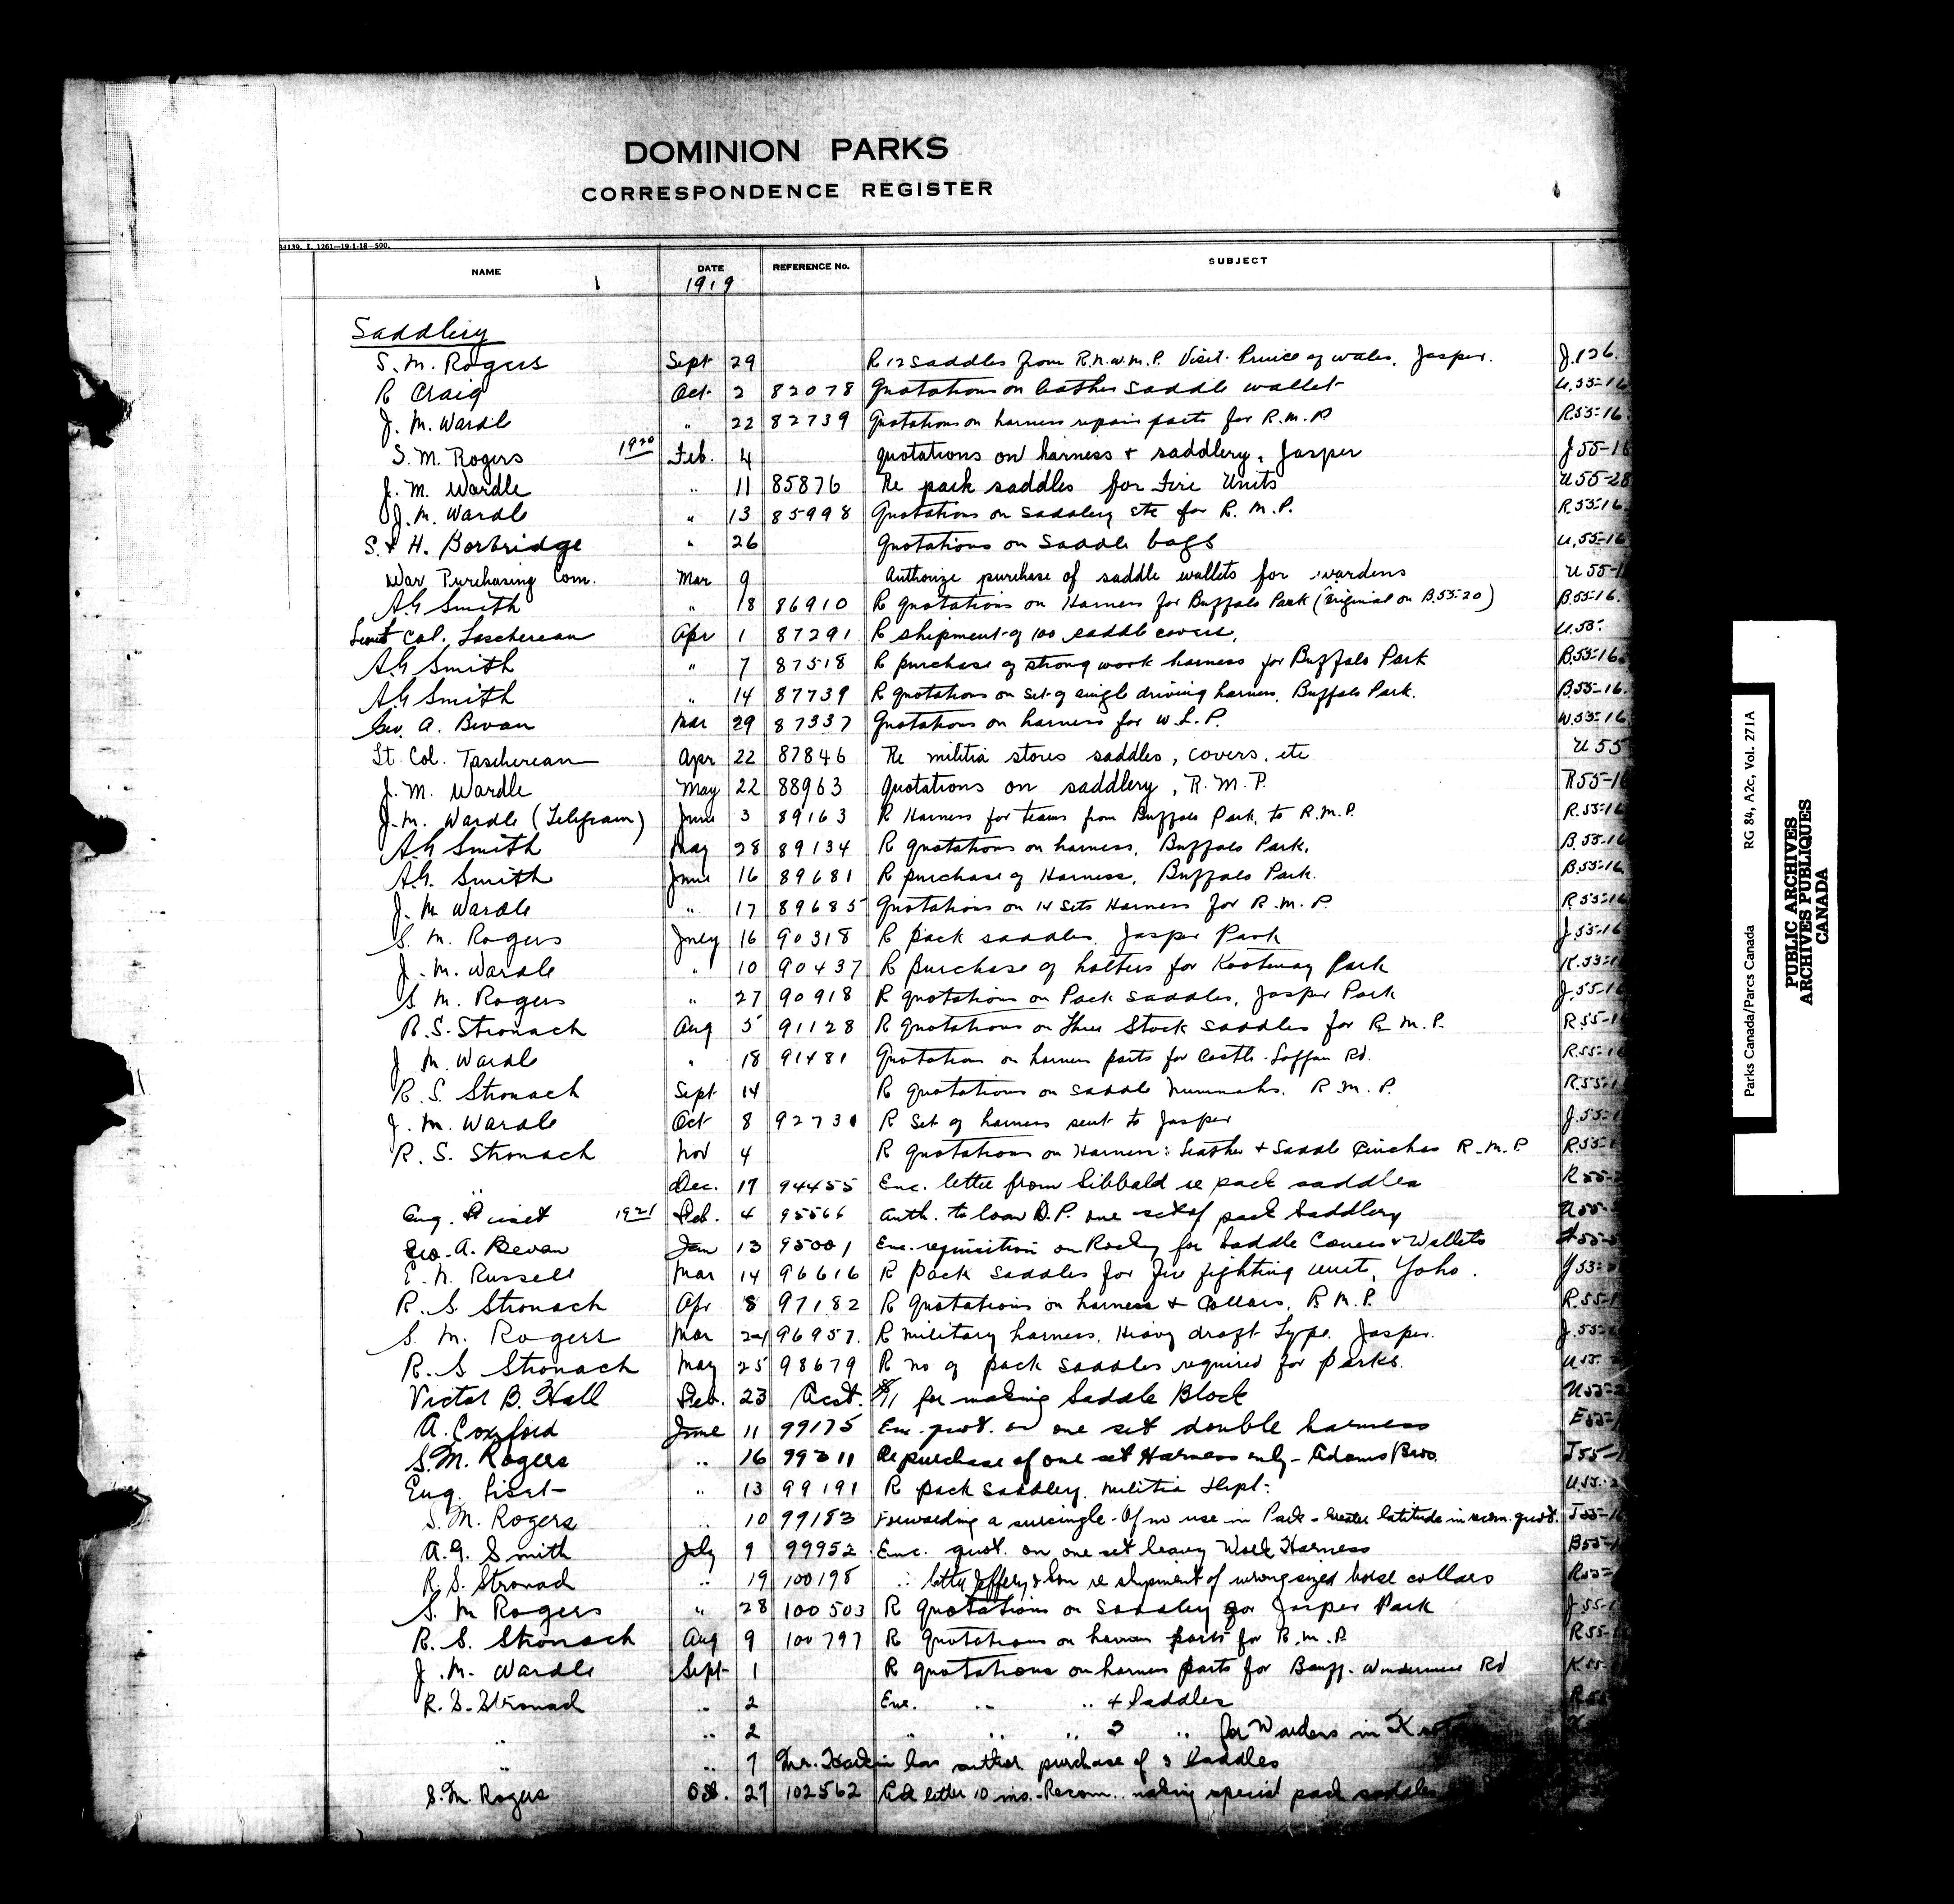 DOMINION PARKS
CORRESPONDENCE REGISTER
34139. I. 1261—19-1-18 500.
NAME DATE REFERENCE No. SUBJECT
1919
Saddlery
S. M. Rogers Sept 29 R 12 saddles from R.N.W.M.P. Visit. Prince of Wales, Jasper. J.126.
R Craig Oct 2 82078 Quotations on leather saddle wallet U.55-16
J. M. Wardle " 22 82739 Quotations on harness repair parts for R.M.P R.55-16.
S. M. Rogers 1920 Feb. 4 quotations on harness & saddlery, Jasper J 55-16
J. M. Wardle " 11 85876 Re pack saddles for Fire Units U 55-28
J. M. Wardle " 13 85998 Quotations on Saddlery etc for R. M. P. R.55-16.
S. & H. Borbridge " 26 Quotations on Saddle bags U.55-16
War Purchasing Com. Mar 9 Authorize purchase of saddle wallets for wardens U 55-1
A.G Smith " 18 86910 R quotations on Harness for Buffalo Park (Original on B.55-20) B.55-16.
Lieut Col. Taschereau Apr 1 87291 R shipment of 100 saddle covers, U.55.
A.G Smith " 7 87518 R purchase of strong work harness for Buffalo Park B.55-16.
A.G Smith " 14 87739 R quotations on set of single driving harness, Buffalo Park. B.55-16.
Geo. A. Bevan Mar 29 87337 Quotations on harness for W.L.P. W.55-16
Lt. Col. Taschereau Apr 22 87846 Re militia stores saddles, covers, etc U 55
J. M. Wardle May 22 88963 Quotations on saddlery, R.M.P. R55-16
J. M. Wardle (Telegram) June 3 89163 R Harness for teams from Buffalo Park, to R.M.P. R.55-16
A.G Smith May 28 89134 R quotations on harness, Buffalo Park. B.55-16
A.G. Smith June 16 89681 R purchase of Harness, Buffalo Park. B.55-16.
J. M Wardle " 17 89685 Quotations on 14 Sets Harness for R.M.P. R.55-16
S. M. Rogers July 16 90318 R pack saddles, Jasper Park J.55-16
J. M. Wardle " 10 90437 R purchase of halters for Kootenay Park K.55-1
S. M. Rogers " 27 90918 R quotations on Pack saddles, Jasper Park J.55-16
R. S. Stronach Aug 5 91128 R quotations on three Stock saddles for R. M. P. R 55-1
J M. Wardle " 18 91481 Quotations on harness parts for Castle-Laggan Rd. R.55-16
R. S. Stronach Sept 14 R quotations on saddle Numnahs. R.M.P. R.55-1
J. M. Wardle Oct 8 92731 R Set of harness sent to Jasper J.55-1
R. S. Stronach Nov 4 R quotations on Harness: Leather & Saddle Cinches R.M.P R.55-1
" Dec. 17 94455 Enc. letter from Sibbald re pack saddles R 55-2
Eug. Fiset 1921 Feb. 4 95566 Auth. to loan D.P. one set of pack saddlery U55-
Geo. A. Bevan Jan 13 95001 Enc. requisition on Rocky for Saddle Covers & Wallets
E. N. Russell Mar 14 96616 R Pack Saddles for fire fighting unit, Yoho. Y55-
R. S. Stronach Apr 8 97182 R quotations on harness & Collars, R.M.P. R.55-1
S. M. Rogers Mar 24 96957. R military harness, Heavy draft Type. Jasper. J.55-
R. S Stronach May 25 98679 R no of pack saddles required for parks. U 55-
Victor B. Hall Feb. 23 Acct. for making Saddle Block U55-2
A. Coxford June 11 99175 Enc. quot. on one set double harness E55-
S. M. Rogers " 16 99311 Re purchase of one set Harness only - Adams Bros. J55-1
Eug. Fiset " 13 99191 R pack saddlery. Militia Dept. U55-2
S. M. Rogers " 10 99183 Forwarding a surcingle - Of no use in Park - Greater latitude in recom. quot. J55-16
A. G. Smith July 9 99952 Enc. quot. on one set heavy Work Harness B55-1
R. S. Stronach " 19 100198 " letter Jeffery & Son re shipment of wrong sized horse collars R55-
S. M Rogers " 28 100503 R quotations on Saddlery for Jasper Park J.55-1
R. S. Stronach Aug 9 100797 R quotations on harness parts for R.M.P. R55-
J. M. Wardle Sept 1 R quotations on harness parts for Banff-Windermere Rd K.55-
R. S. Stronach " 2 Enc. " " 4 Saddles R55
" " 2 " " " 3 " for Wardens in
" " 7 Mr. Harkin has author purchase of 3 Saddles
S. M. Rogers Oct. 27 102562 letter 10 ins. - Recom. making special pack saddles
Parks Canada/Parcs Canada RG 84, A2c, Vol. 271A
PUBLIC ARCHIVES
ARCHIVES PUBLIQUES
CANADA